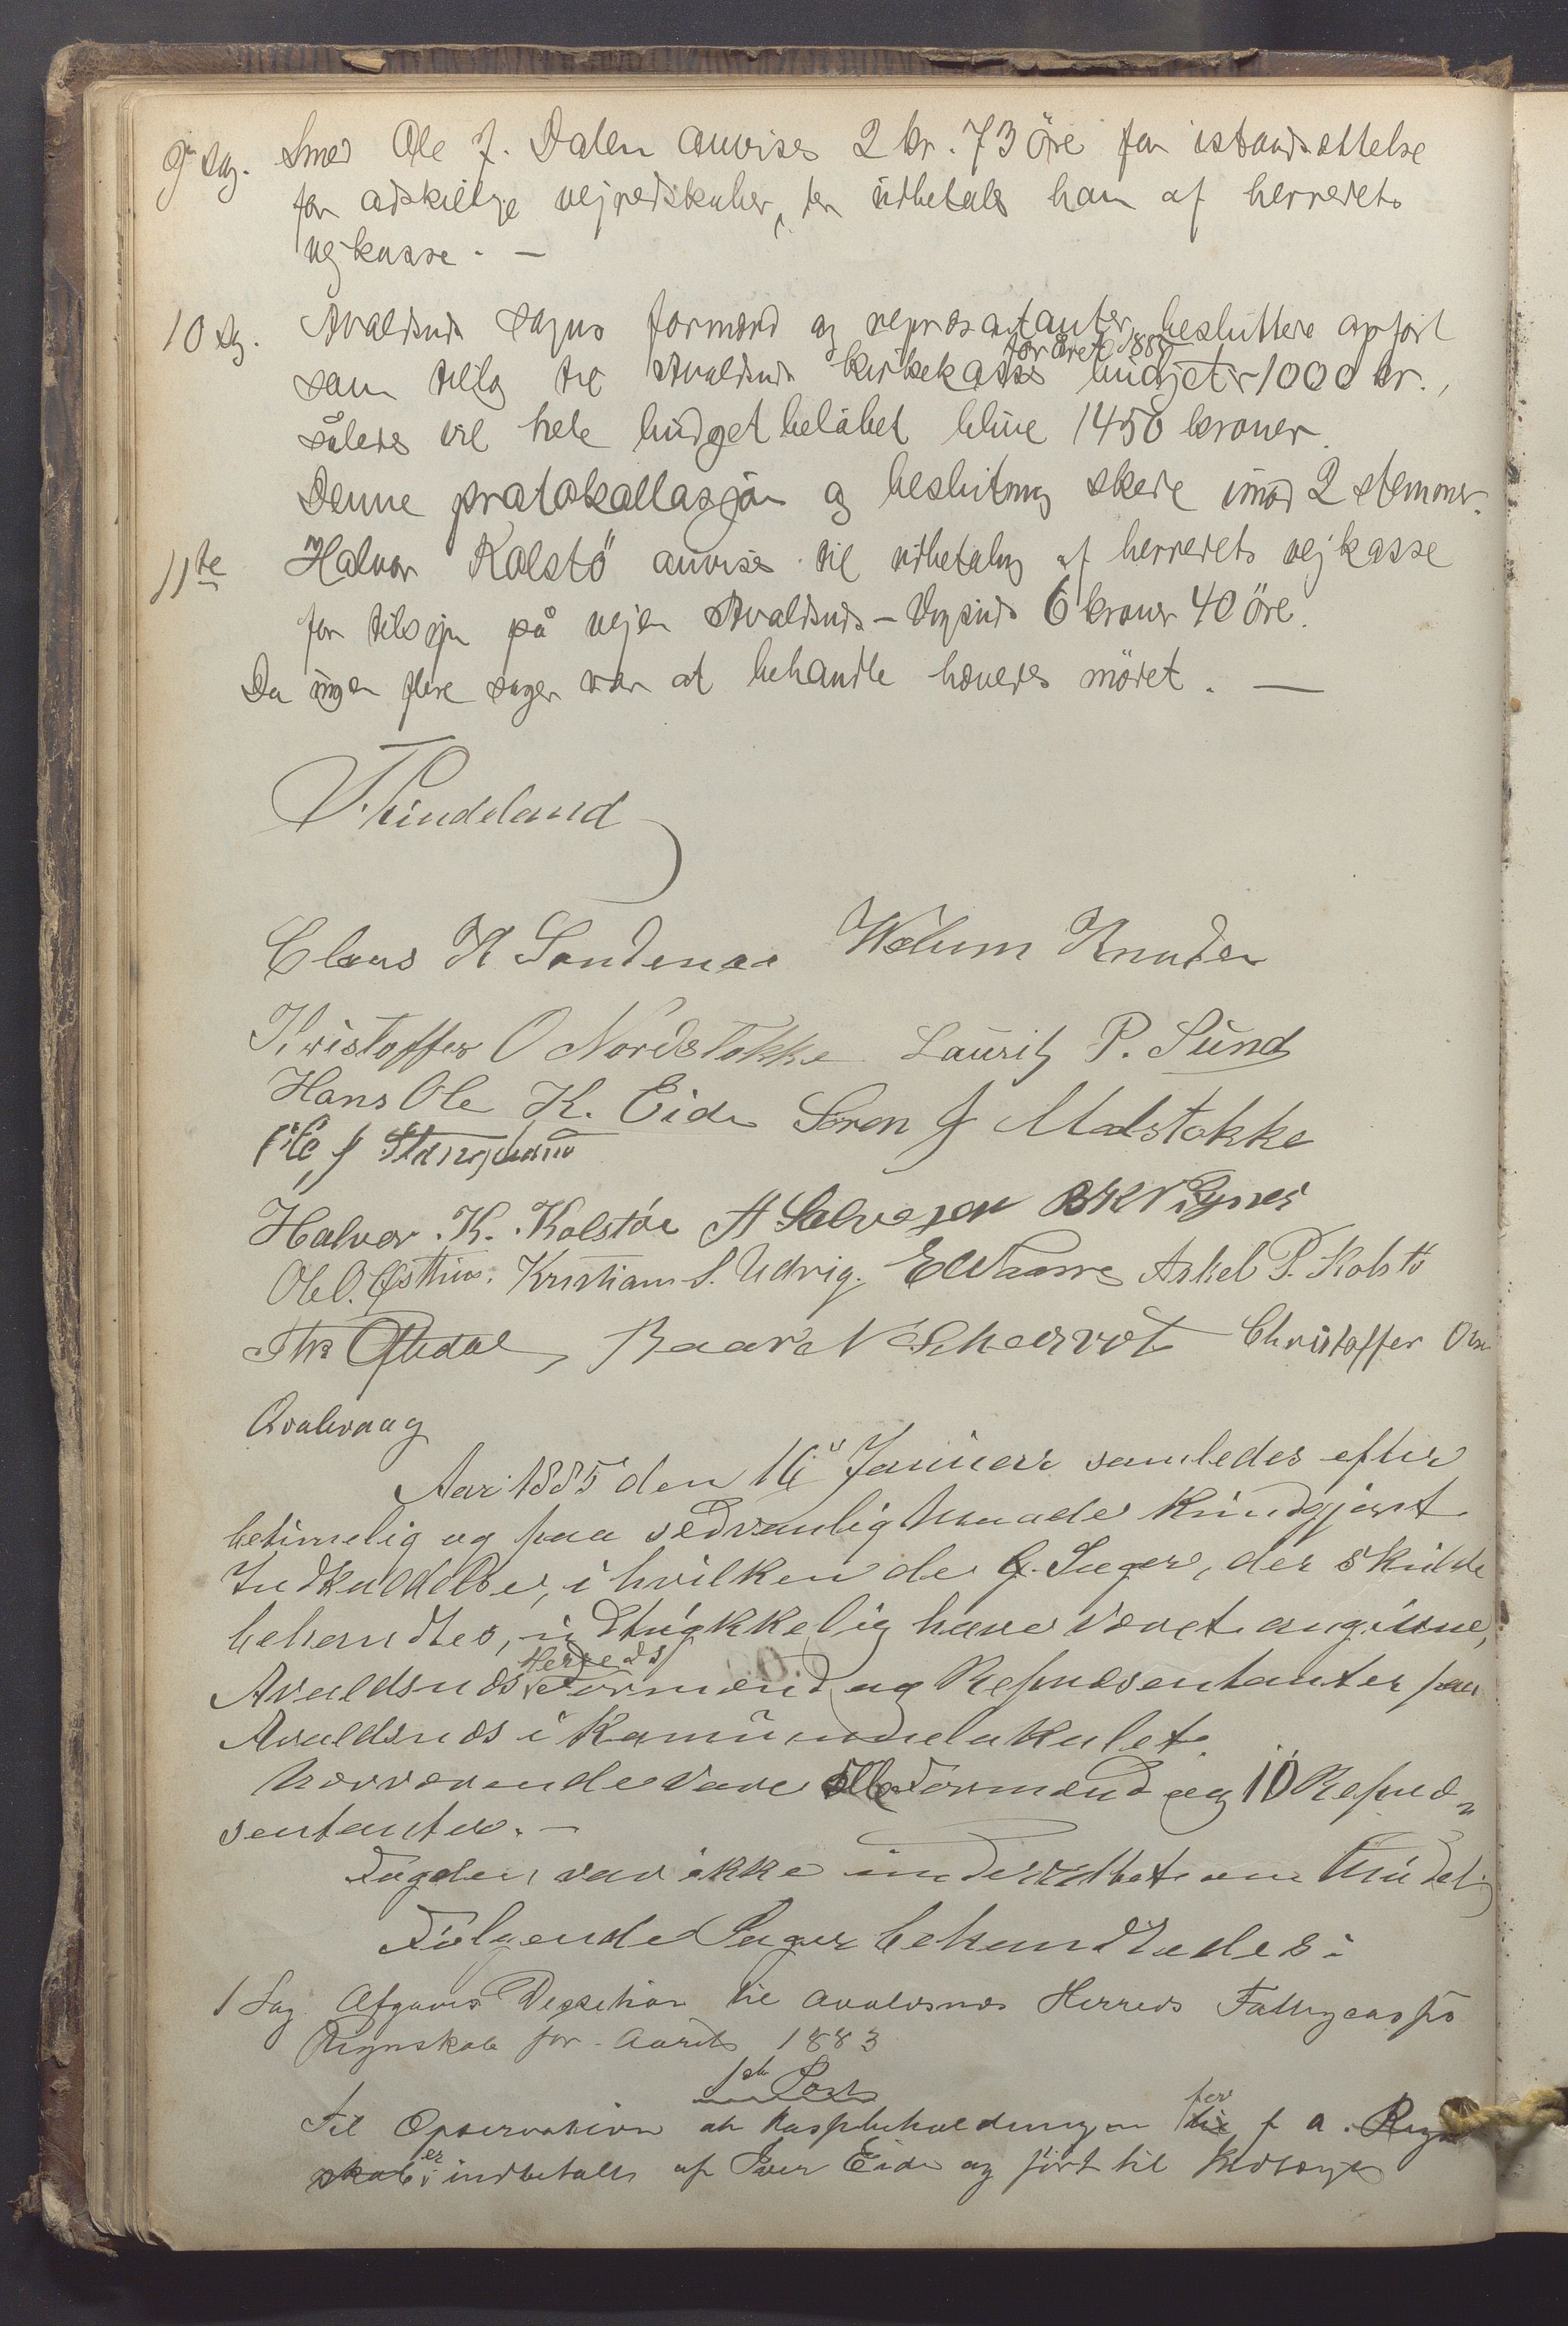 9de sag. Smed Ole J. Dalen anvises 2 kr. 73 öre for istandsættelse
for adskillige vejredskaber, der udbetales ham af herredets
vejkasse. —
10 sg. Avaldsnes sogns formænd og repræsentanter besluttede opfört
som tillæg til Avaldsnes kirkekasses budjet for året 1885 1000 kr.,
således vil hele budgetbelöbet blive 1450 kroner.
Denne protokollasjon og beslutning skede imod 2 stemmer.
11te Halvor Kolstö anvises til udbetaling af herredets vejkasse
for tilsyn på vejen Avaldsnes – Vognes 6 kroner 40 öre.
Da ingen flere sager var at behandle hævedes mödet. —
Tindeland
Claus H Sandenaa Welum Knudsen
Kristoffer O Nordstokke Lauritz P. Sund
Hans Ole K. Eide Sören J Medstokke
Ole J Stangeland
Halvor K. Kolstöe A Salvesen BK Vignes
Ole O. Østhus. Kristian S. Udvig. E Waarre Askel P. Kolstö
Ths Oftedal, Baar N Schersvot Christoffer Olsen
Qvalevaag
Aar 1885 den 16de Januar samledes efter
betimelig og paa sedvanlig Maade kundgjort
Indkaldelse, i hvilken de 9 Sager, der skulde
behandles, udtrykkelig have været angivne,
Avaldsnæs Herreds Formænd og Repræsentanter paa
Avaldsnæs i Kommunelokalet.
Nærværende vare alle Formænd og 10 Repræ-
sentanter. —
Fogden var ikke underrettet om Mødet
Følgende Sager behandledes:
1 Sag Afgaves Decission til Avaldsnes Herreds Fattigcasses
Regnskab for Aaret 1883
1ste Post
Til Observation at Kassebeholdningen til for f. A. Regn
skab er indbetalt af Iver Eide og fört til Indtægt